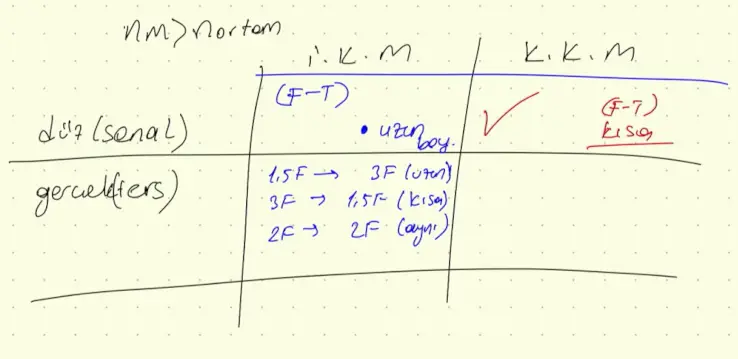 nm > nortam
i.K.M K.K.M
(F-T) (F-T)
düz (sanal) • uzun boy. ✓ kısa
gerçek (ters) 1,5F → 3F (uzun)
3F → 1,5F (kısa)
2F → 2F (aynı)